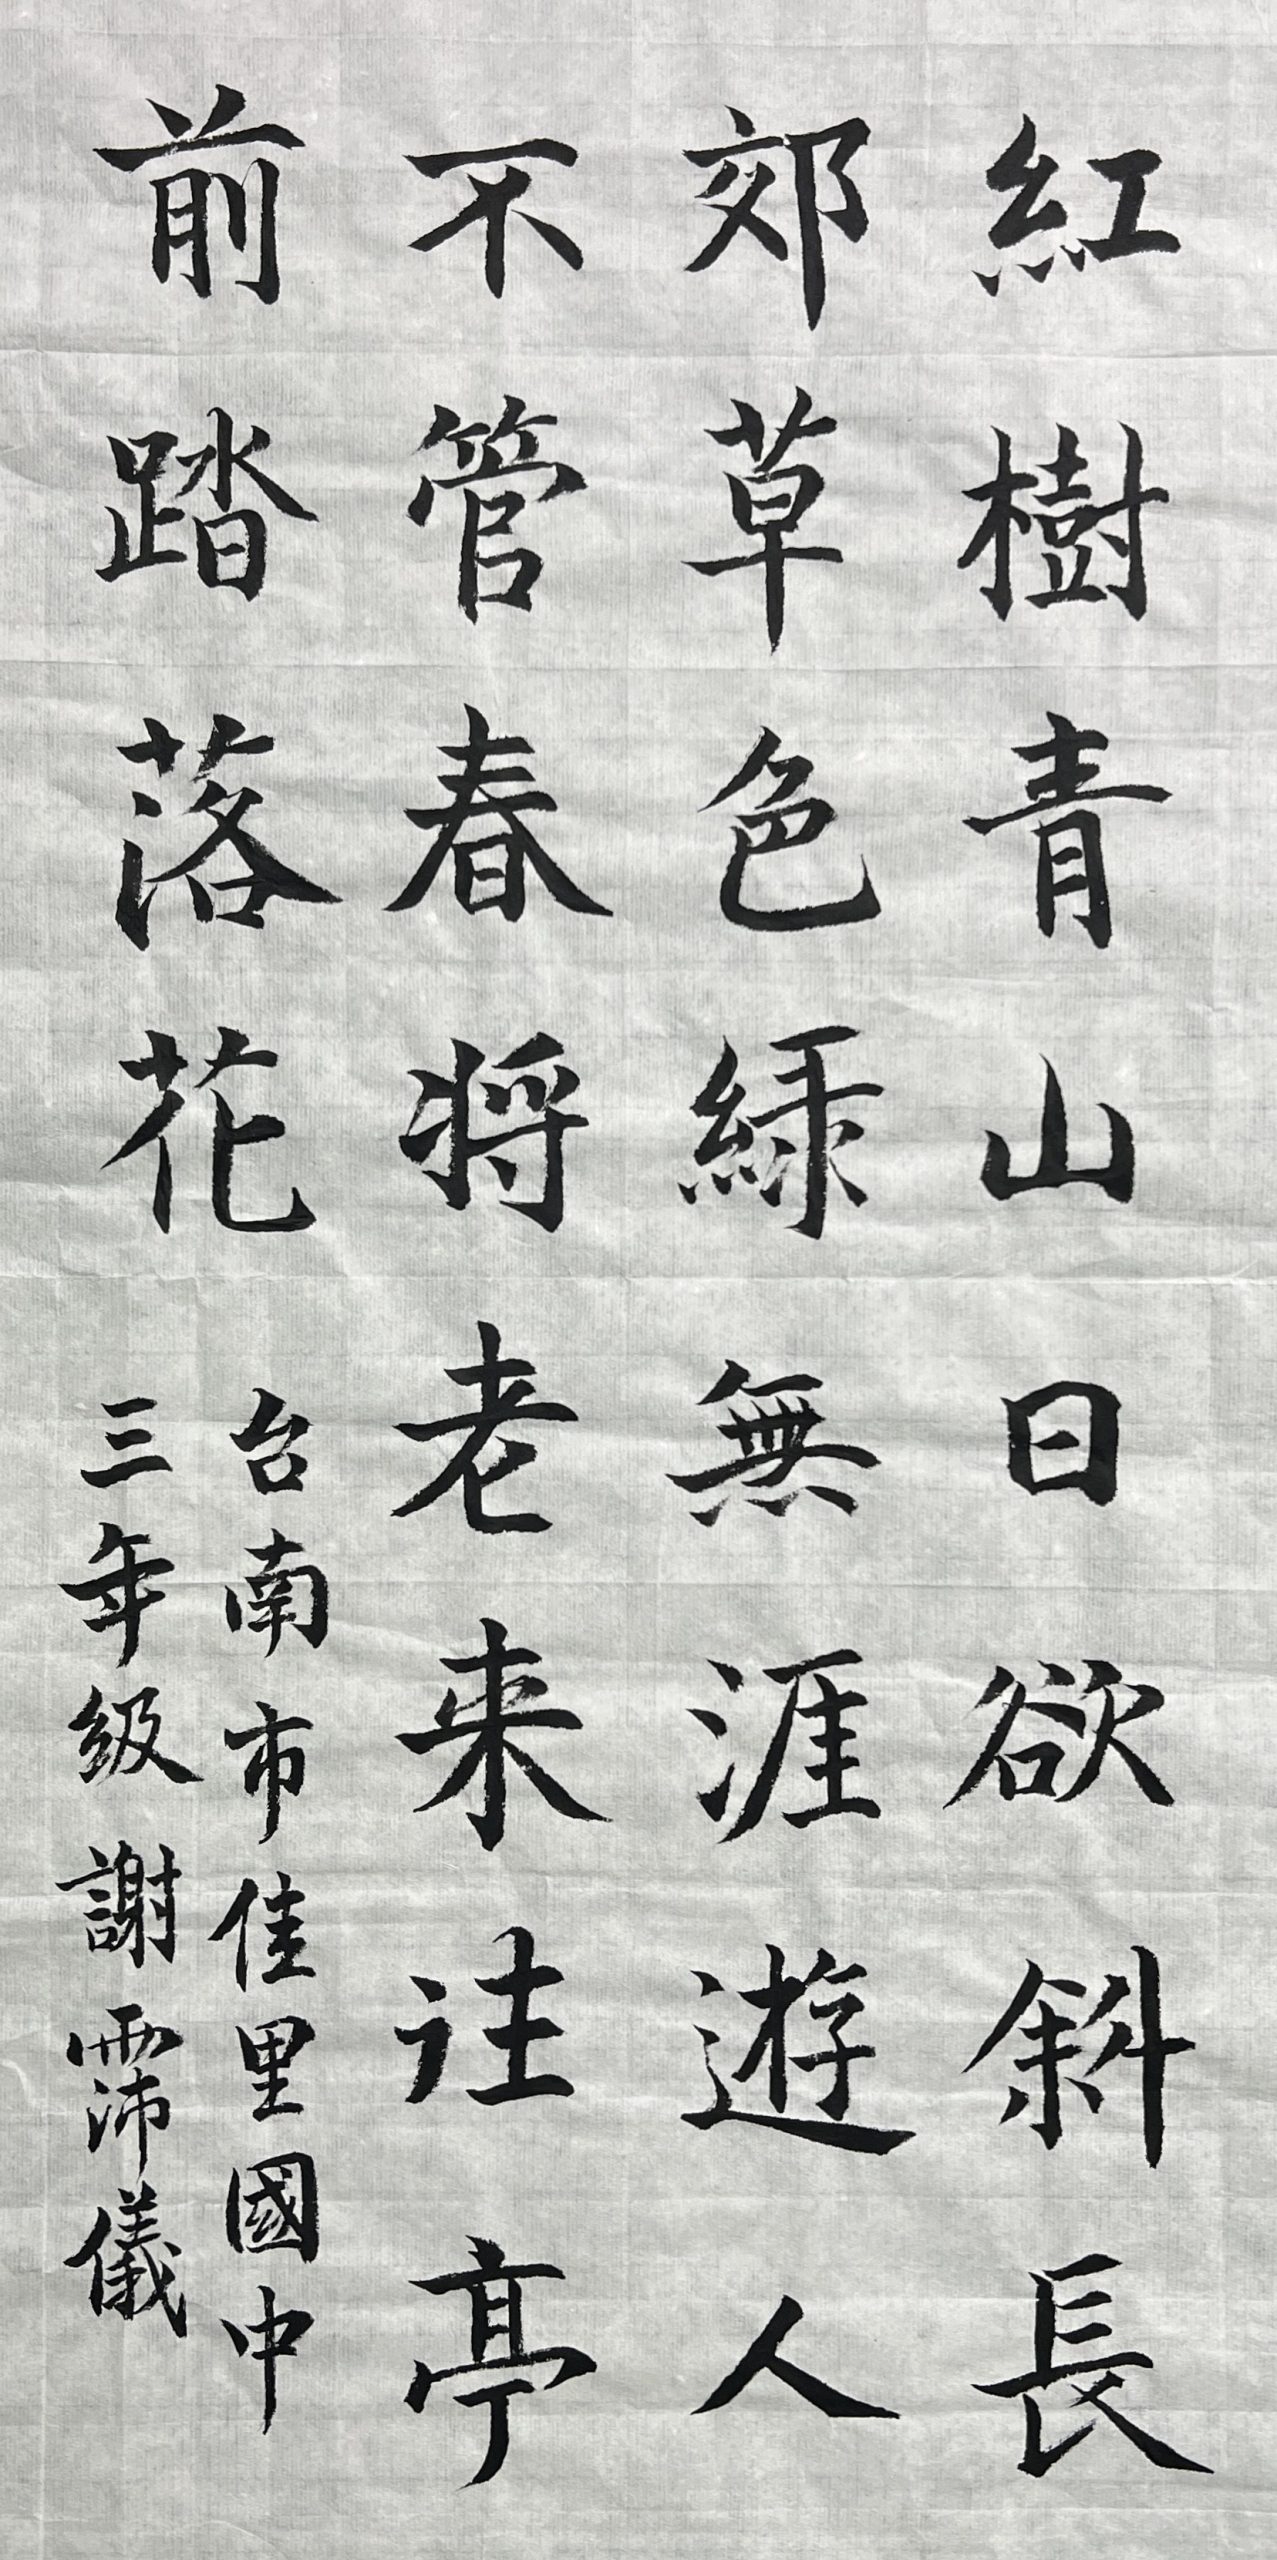 紅樹青山日欲斜長
郊草色綠無涯遊人
不管春將老来往亭
前踏落花
台南市佳里國中
三年级謝霈儀